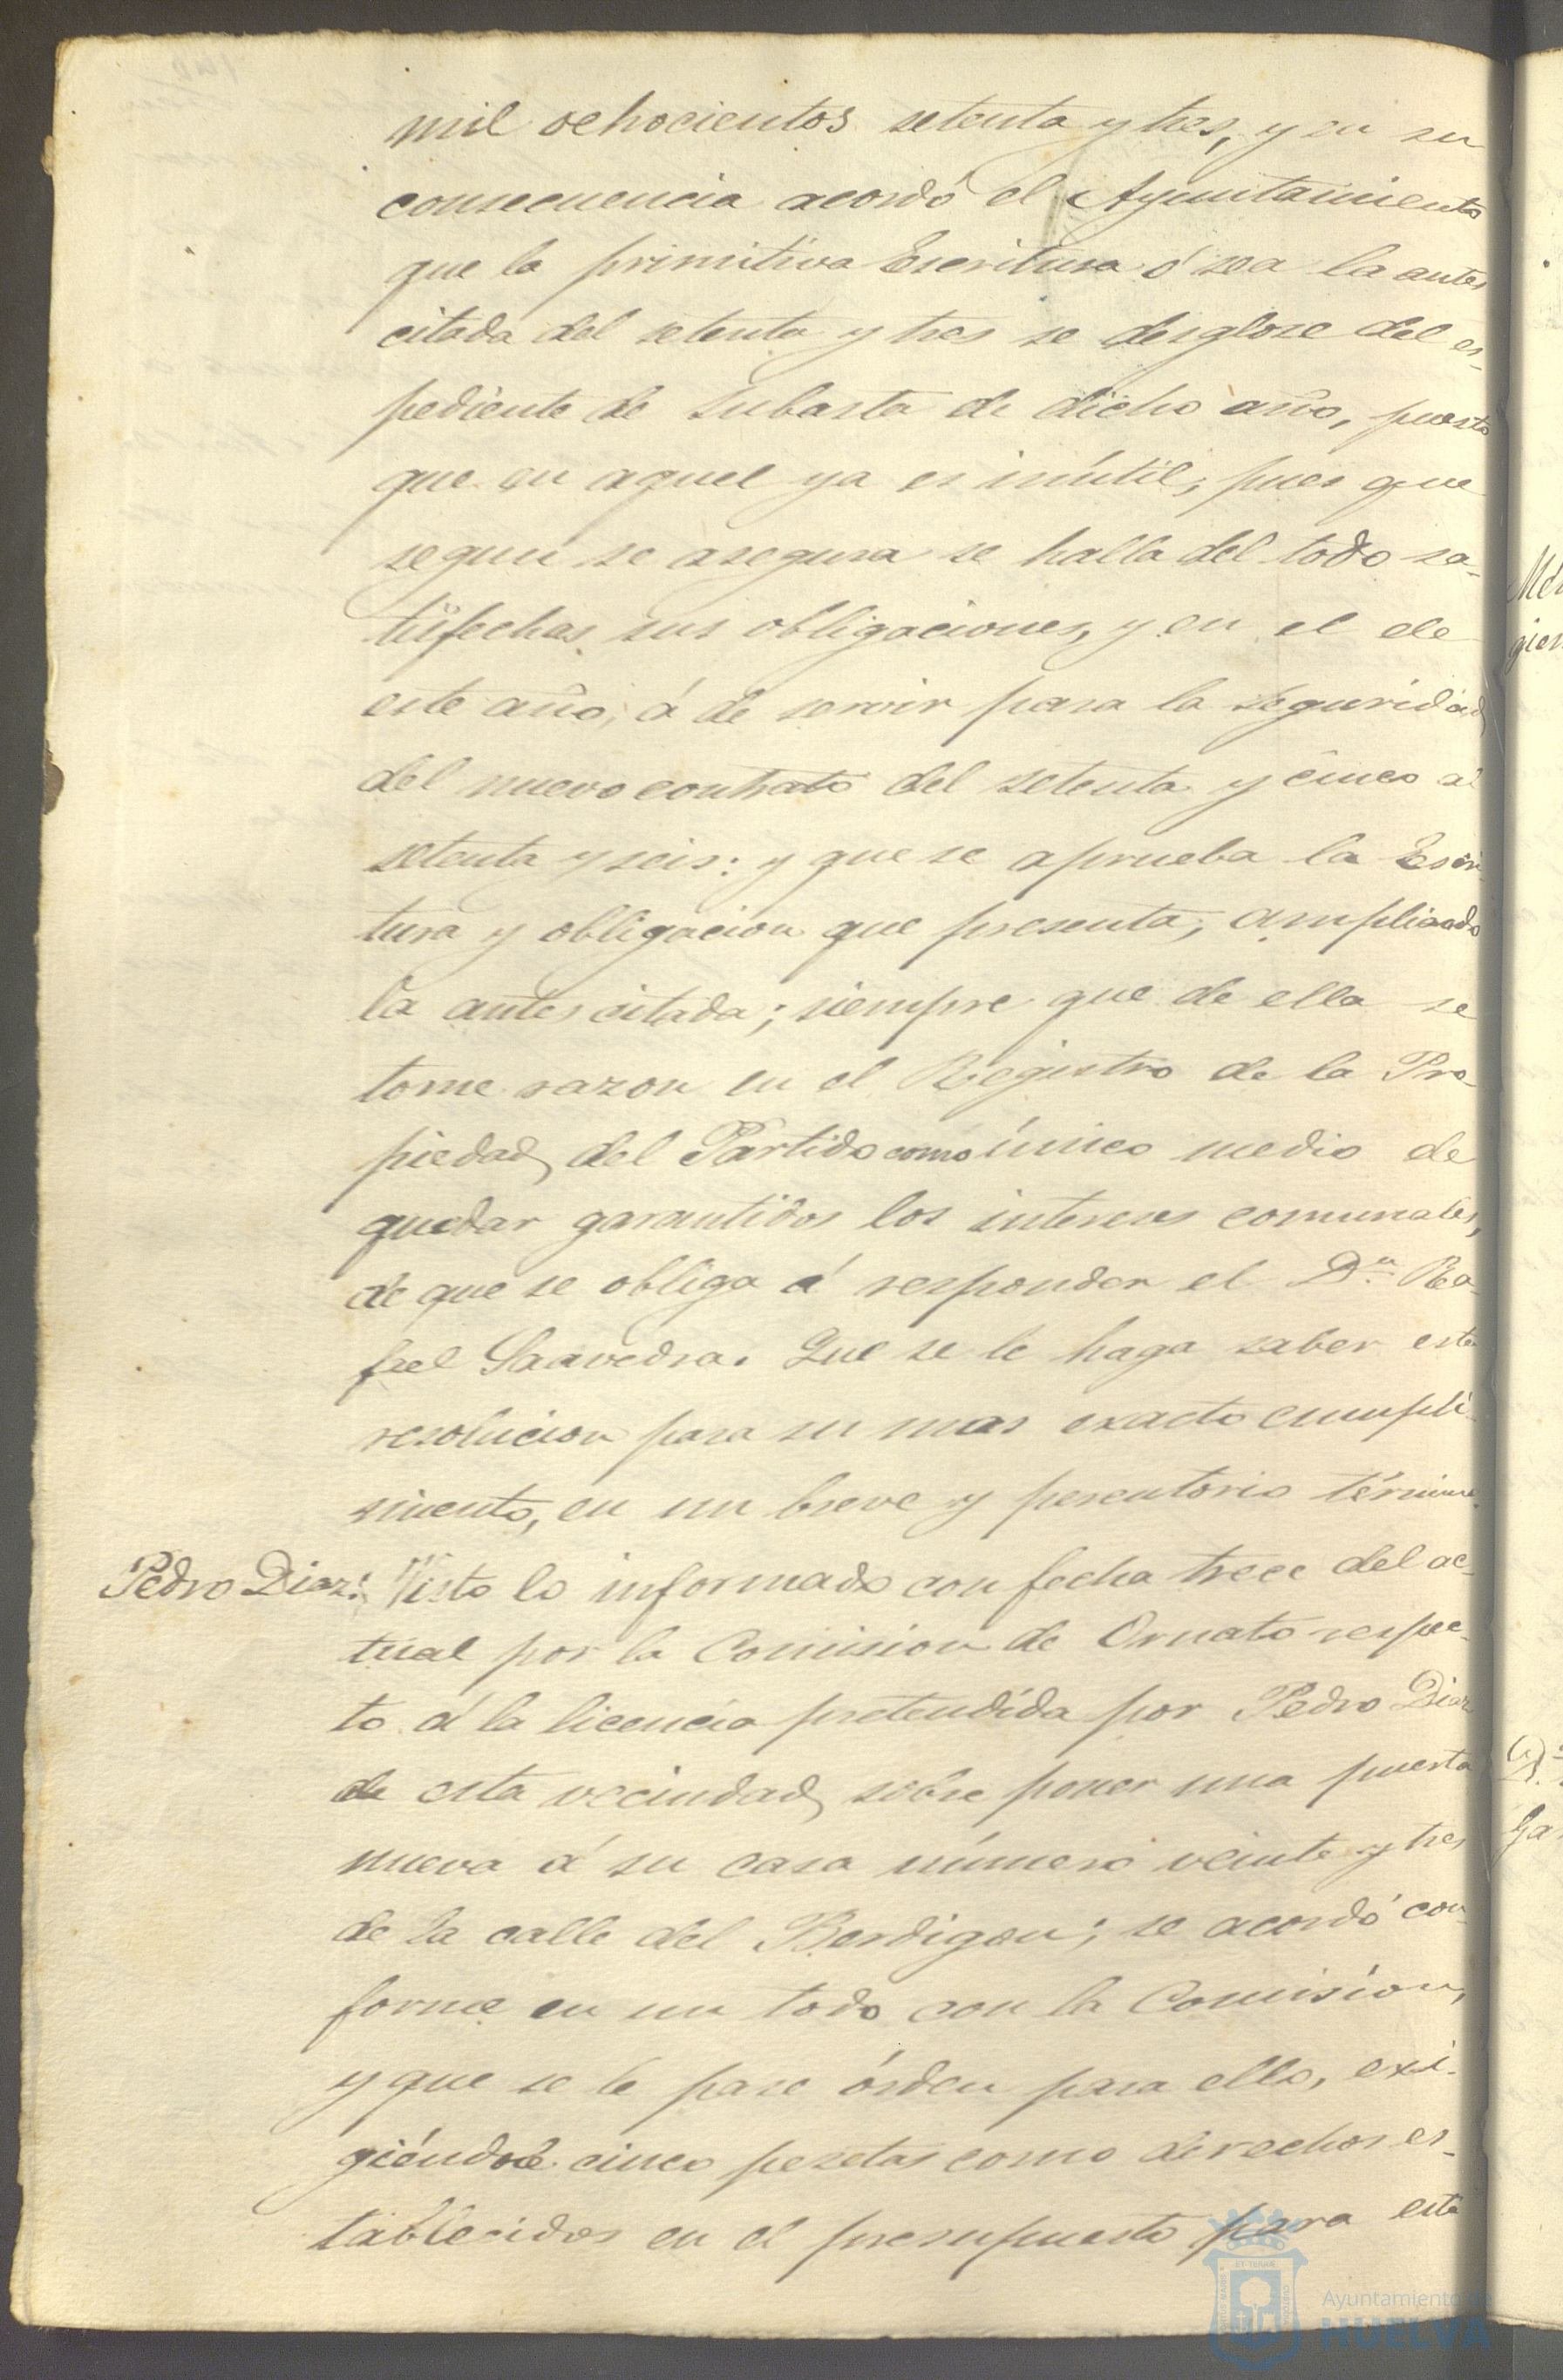 mil ochocientos setenta y tres, y en su
consecuencia acordó el Ayuntamiento
que la primitiva Escritura ó sea la antes
citada del setenta y tres se desglose del es-
pediente de subasta de dicho año, puesto
que en aquel ya es inútil, pues que
segun se asegura se halla del todo sa-
tisfechas sus obligaciones, y en el de
este año, á de servir para la seguridad
del nuevo contrato del setenta y cinco al
setenta y seis: y que se aprueba la Escri-
tura y obligacion que presenta, ampliando
la antes citada; siempre que de ella se
tome razon en el Registro de la Pro-
piedad del Partido como único medio de
quedar garantidos los intereses comunales,
de que se obliga á responder el Dn. Ra-
fael Saavedra. Que se le haga saber esta
resolucion para su mas exacto cumpli-
miento, en un breve y perentorio término.
Pedro Diaz: Visto lo informado con fecha trece del ac-
tual por la Comision de Ornato respec-
to á la licencia pretendida por Pedro Diaz
de esta vecindad sobre poner una puerta
nueva á su casa número veinte y tres
de la calle del Berdigon; se acordó con-
forme en un todo con la Comision,
y que se le pase órden para ello, exi-
giéndole cinco pesetas como derechos es-
tablecidos en el presupuesto para este
Ayuntamiento de
HUELVA